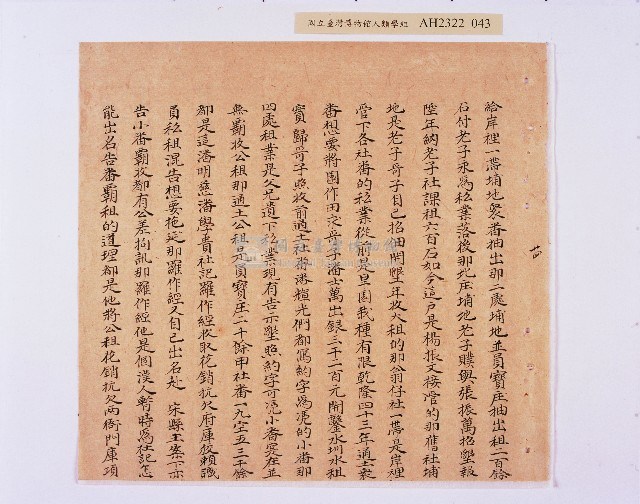 國立臺灣博物館人類學組 AH2322 043
給岸裡一帶埔地眾番抽出那二處埔地並員寶庄抽出租二百餘
石付老子永為私業落後那北庄埔地老子贌與張振萬招墾報
陞年納老子社課租六百石如今這戶是楊振文接管的那舊社埔
地是老子哥子自己招佃開墾年收大租的那翁仔社一帶是岸裡
管下各社番的私業從前是旱園栽種有限乾隆四十三年通土眾
番想要將園作田交哥子潘士萬出銀三千二百元開鑿水圳水租
實歸哥子照收前通土番潘 光們都寫約字為憑的小番那
四處租業是父兄遺下私業現有告示墾照約字可憑小番實在並
無霸收公租那通土公租是員寶庄一千餘甲社番一九空五三千餘
都是這潘明慈潘學貴社記羅作經收取花銷抗欠府庫倒賴職
員私租混告想要拖延那羅作經又自己出名赴 宋縣主案下亦
告小番霸收都有公差拘訊那羅作經他是個漢人暫時為社記怎
能出名告番霸租的道理都是他將公租花銷抗欠兩衙門庫項